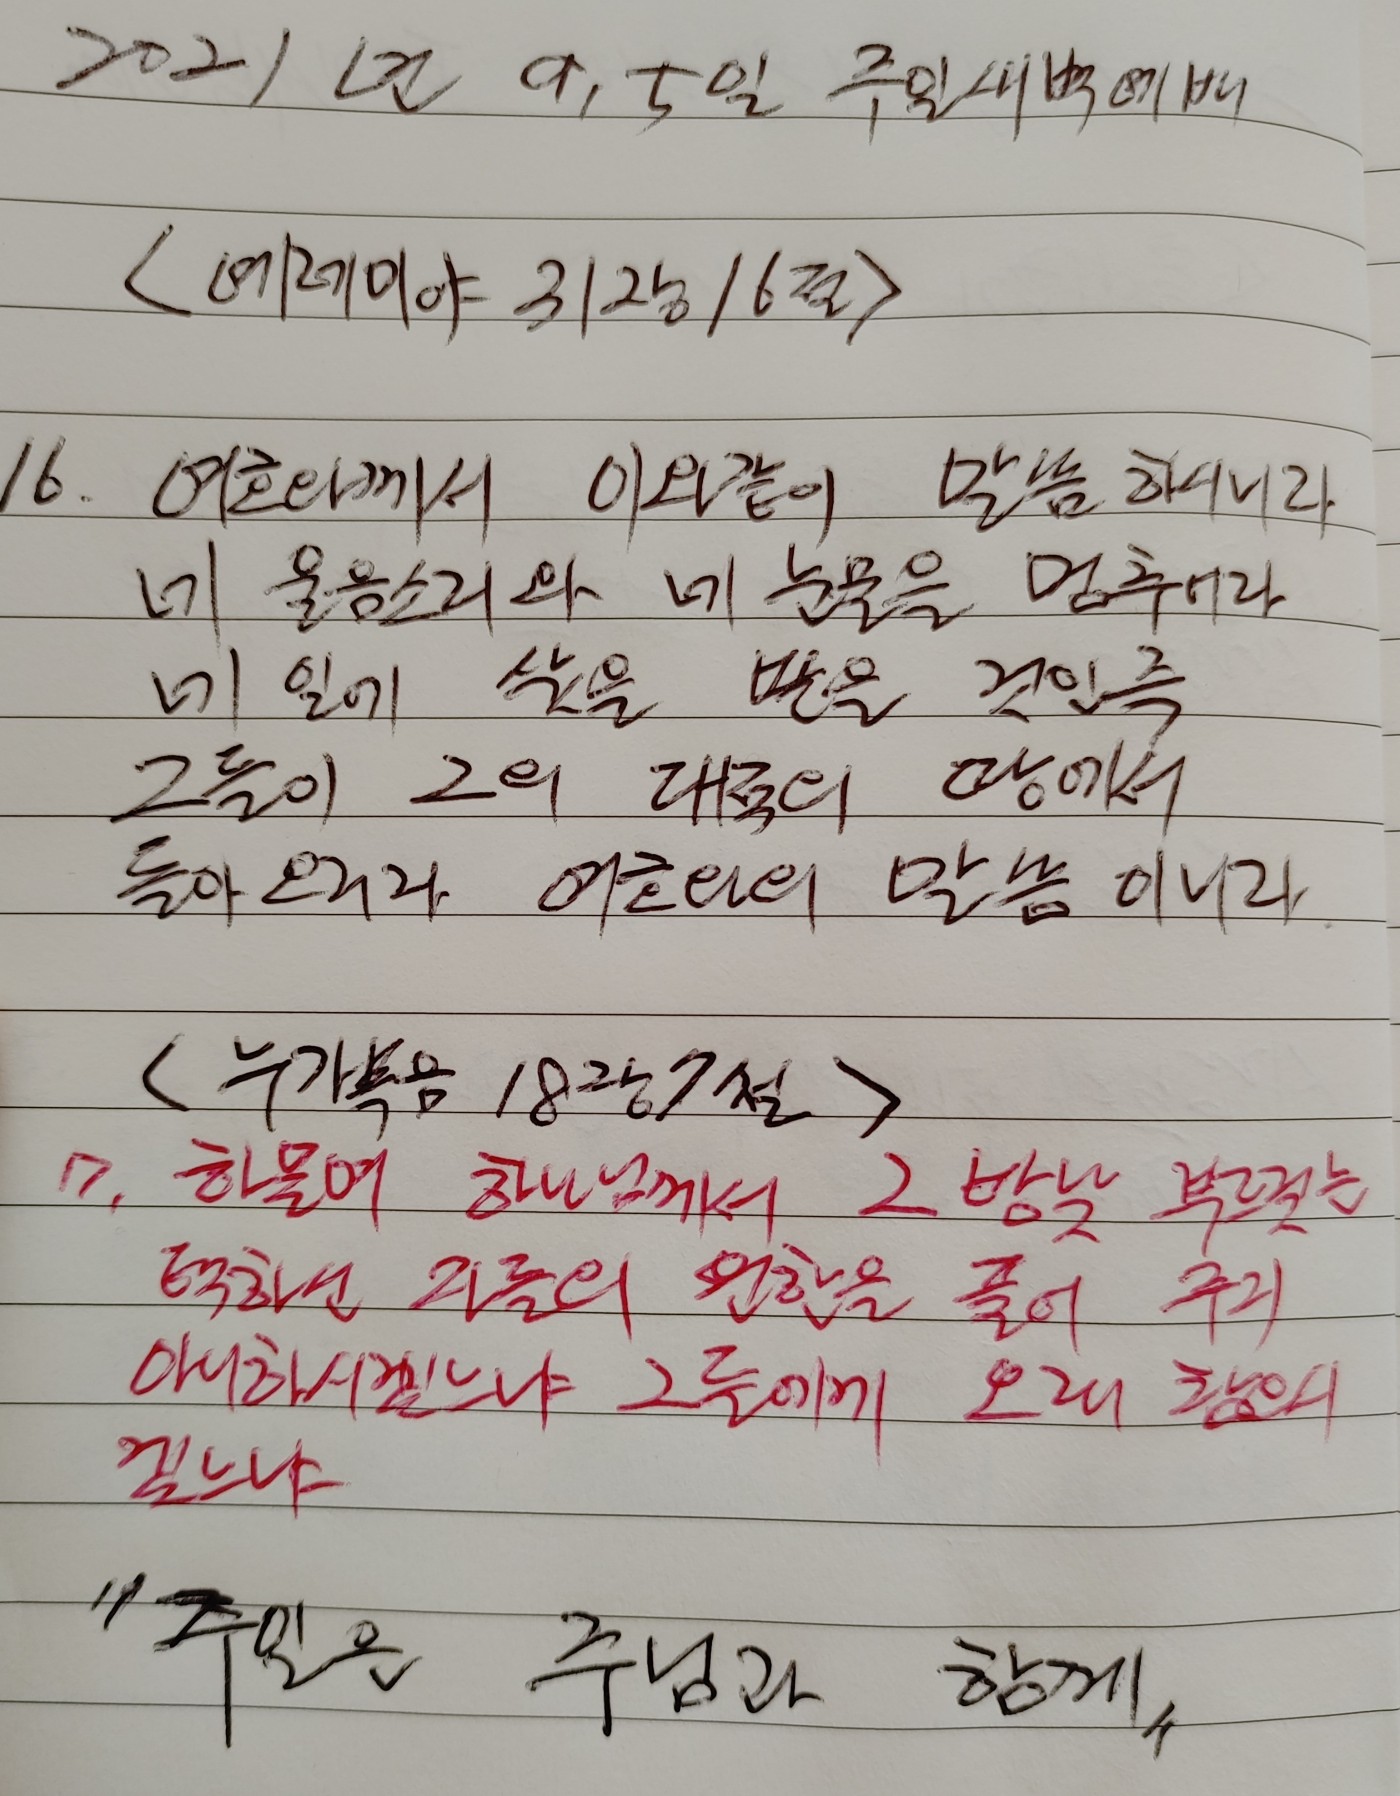 2021년 9, 5일 주일새벽예배
<예레미야 31장 16절>
16. 여호와께서 이와같이 말씀하시니라
네 울음소리와 네 눈물을 멈추어라
네 일에 삯을 받을 것인즉
그들이 그의 대적의 땅에서
돌아오리라 여호와의 말씀이니라
<누가복음 18장 7절>
7. 하물며 하나님께서 그 밤낮 부르짖는
택하신 자들의 원한을 풀어 주지
아니하시겠느냐 그들에게 오래 참으시
겠느냐
"주일은 주님과 함께"